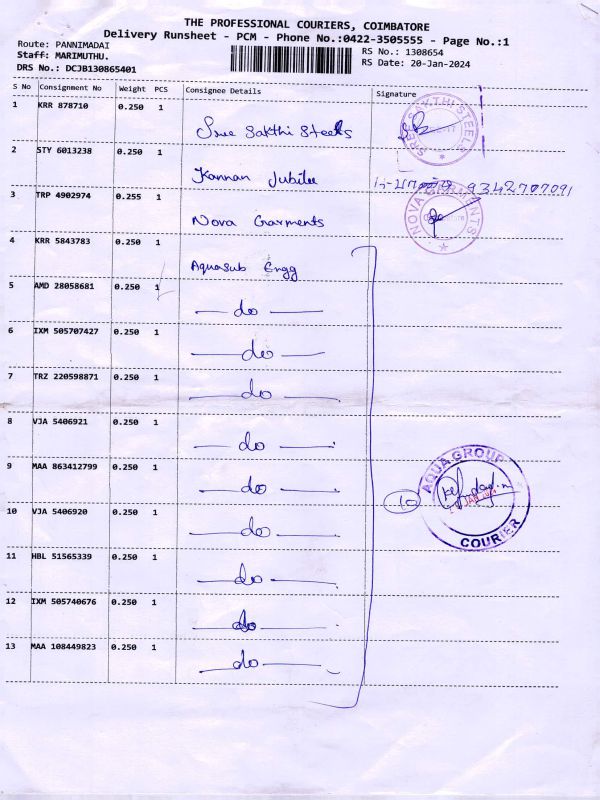 THE PROFESSIONAL COURIERS, COIMBATORE
Delivery Runsheet - PCM - Phone No.:0422-3505555 - Page No.:1
Route: PANNIMADAI
Staff: MARIMUTHU.
DRS No.: DCJB130865401
RS No.: 1308654
RS Date: 20-Jan-2024
S No Consignment No Weight PCS Consignee Details Signature
1 KRR 878710 0.250 1 Sree Sakthi Steels
SREE SAKTHI STEELS
2 STY 6013238 0.250 1 Kannan Jubilee 9342707091
3 TRP 4902974 0.255 1 Nova Garments
NOVA GARMENTS
4 KRR 5843783 0.250 1 Aquasub Engg
5 AMD 28058681 0.250 1 — do —
6 IXM 505707427 0.250 1 — do —
7 TRZ 220598871 0.250 1 — do —
8 VJA 5406921 0.250 1 — do —
9 MAA 863412799 0.250 1 — do —
10 AQUA GROUP COURIER
10 VJA 5406920 0.250 1 — do —
11 HBL 51565339 0.250 1 — do —
12 IXM 505740676 0.250 1 — do —
13 MAA 108449823 0.250 1 — do —